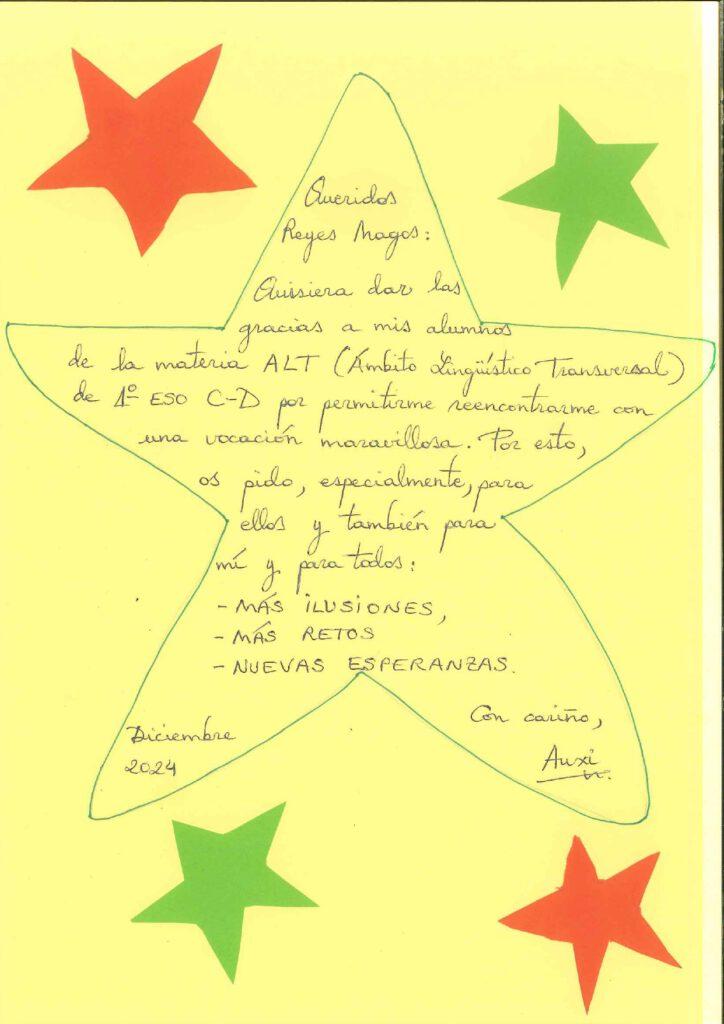 Queridos
Reyes Magos:
Quisiera dar las
gracias a mis alumnos
de la materia ALT (Ámbito Lingüístico Transversal)
de 1º ESO C-D por permitirme reencontrarme con
una vocación maravillosa. Por esto,
os pido, especialmente, para
ellos y también para
mí y para todos:
- MÁS ILUSIONES,
- MÁS RETOS
- NUEVAS ESPERANZAS.
Con cariño,
Diciembre
2024
Auxi